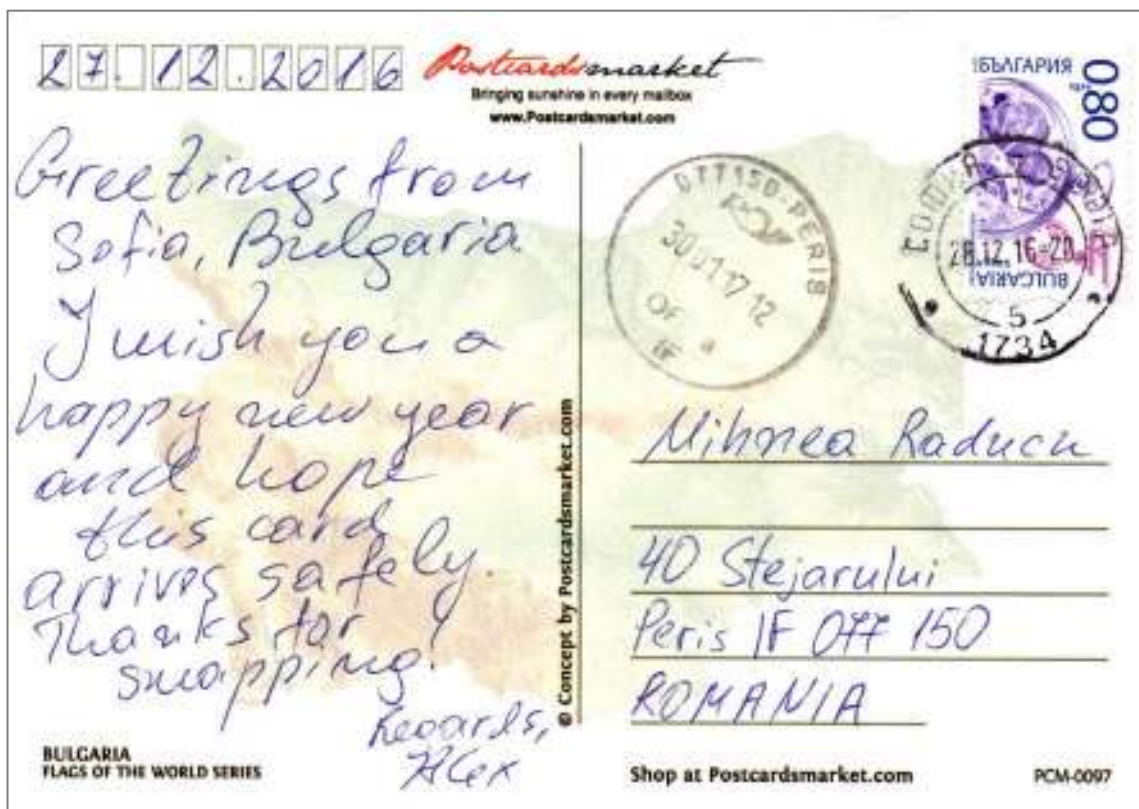 27.12.2016
Postcardsmarket
Bringing sunshine in every mailbox
www.Postcardsmarket.com
Greetings from
Sofia, Bulgaria
I wish you a
happy new year
and hope
this card
arrives safely.
Thanks for
swapping!
Regards,
Alex
© Concept by Postcardsmarket.com
БЪЛГАРИЯ
080
BULGARIA
077150-PERIS
30 01 17 12
OF a
IF
28.12.16-20
5
1734
Mihnea Raducu
40 Stejarului
Peris IF 077 150
ROMANIA
BULGARIA
FLAGS OF THE WORLD SERIES
Shop at Postcardsmarket.com
PCM-0097